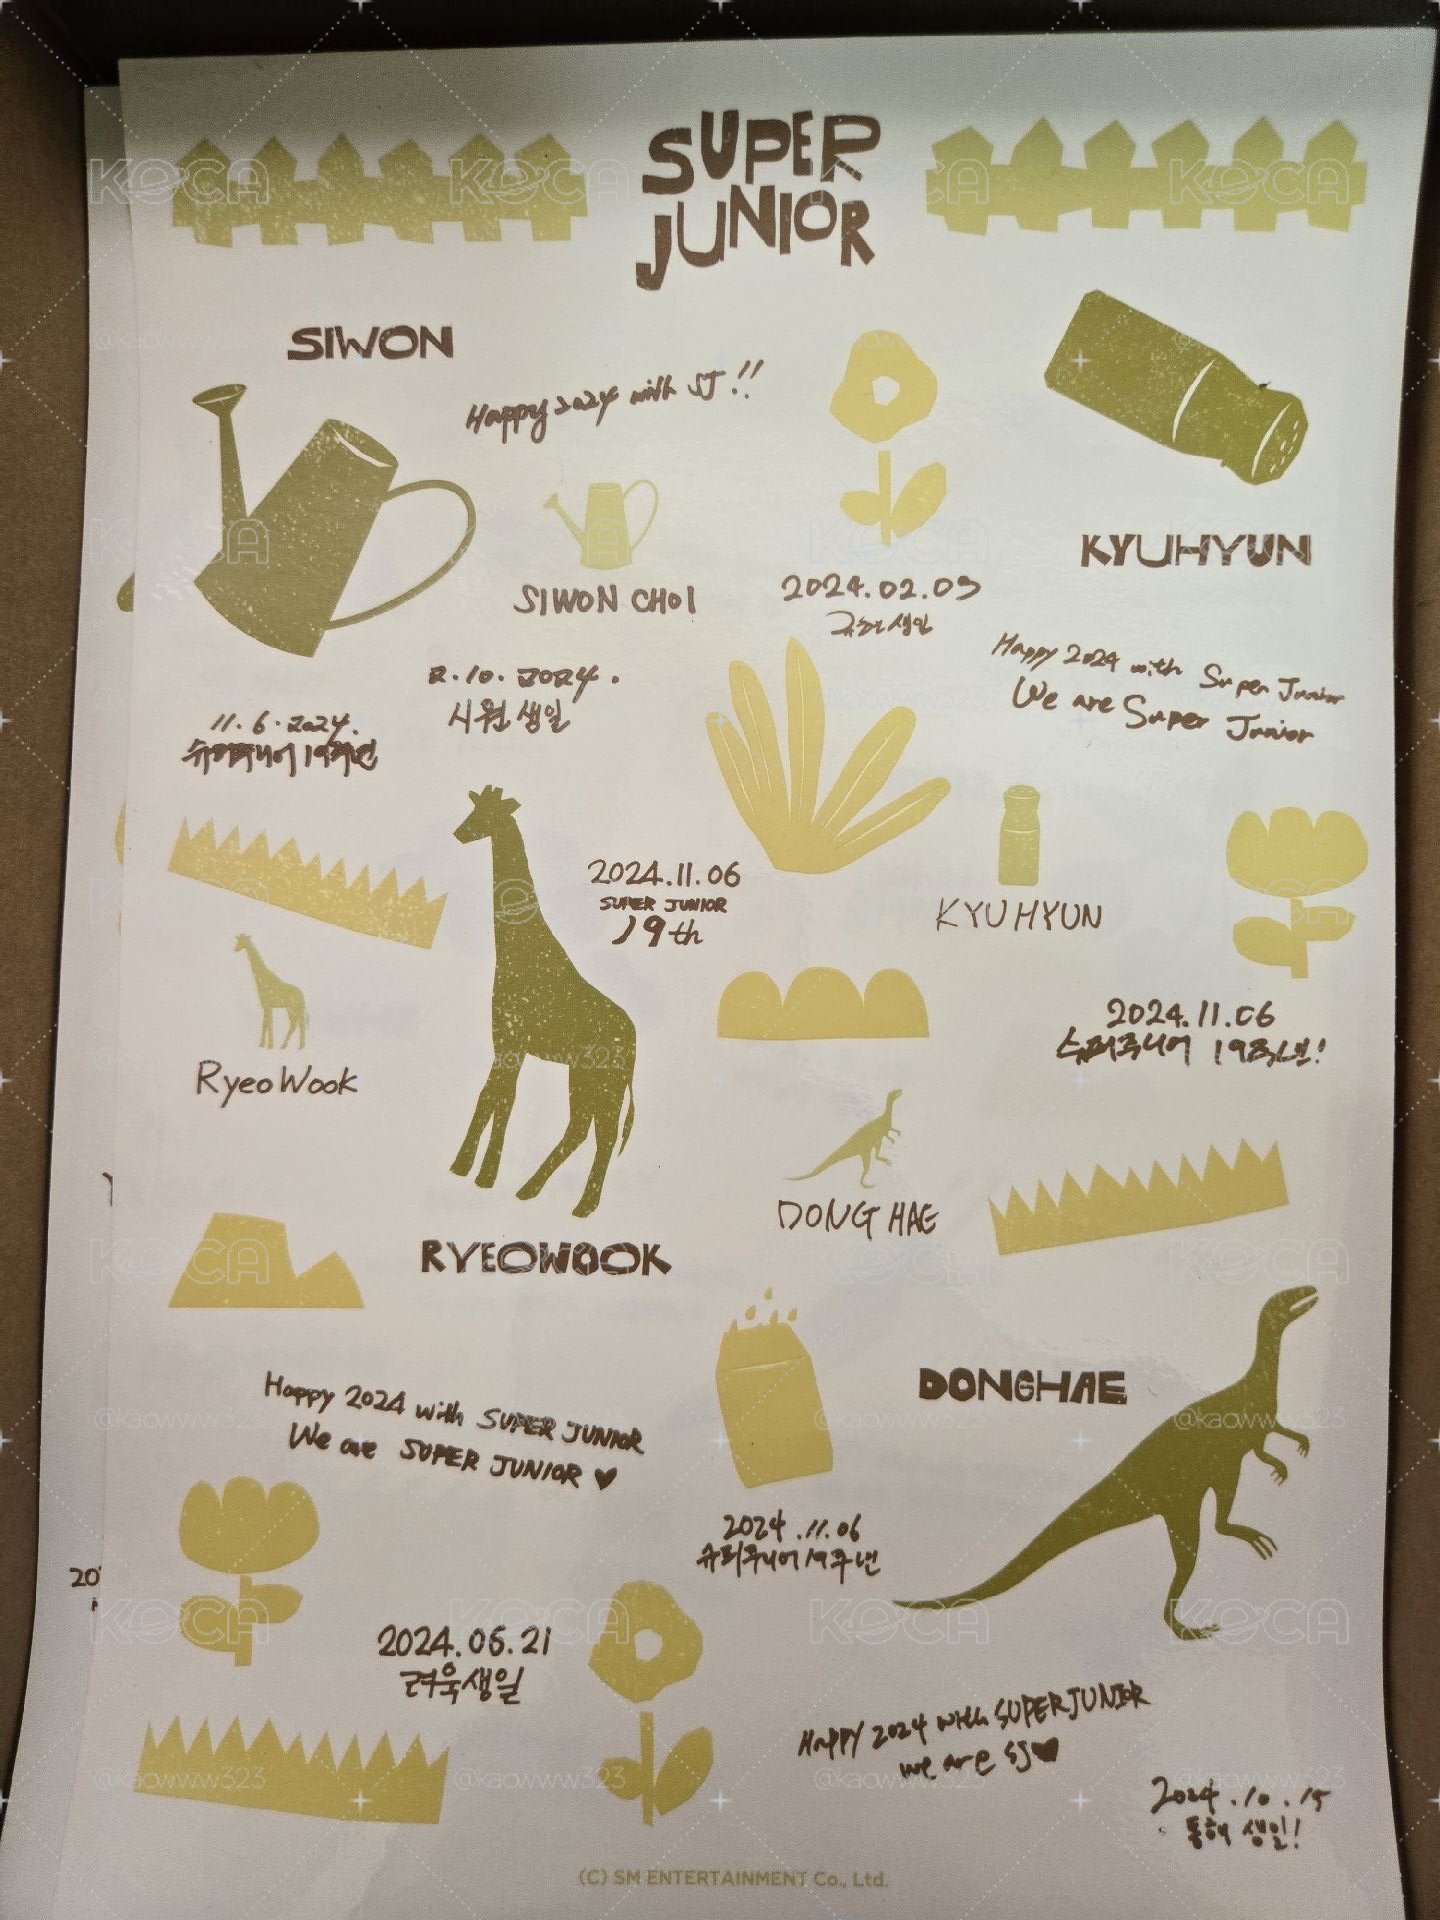 SUPER
JUNIOR
SIWON
Happy 2024 with SJ!!
SIWON CHOI
2.10.2024.
시원 생일
11.6.2024.
슈퍼주니어 19주년
2024.02.03
규현 생일
KYUHYUN
Happy 2024 with Super Junior
We are Super Junior
KYUHYUN
2024.11.06
SUPER JUNIOR
19th
2024.11.06
슈퍼주니어 19주년!
RyeoWook
RYEOWOOK
DONG HAE
DONGHAE
Happy 2024 with SUPER JUNIOR
We are SUPER JUNIOR ♥
2024.11.06
슈퍼주니어 19주년
2024.06.21
려욱생일
Happy 2024 with SUPER JUNIOR
we are SJ♥
2024.10.15
동해 생일!
(C) SM ENTERTAINMENT Co., Ltd.
KOCA
@kaowww323